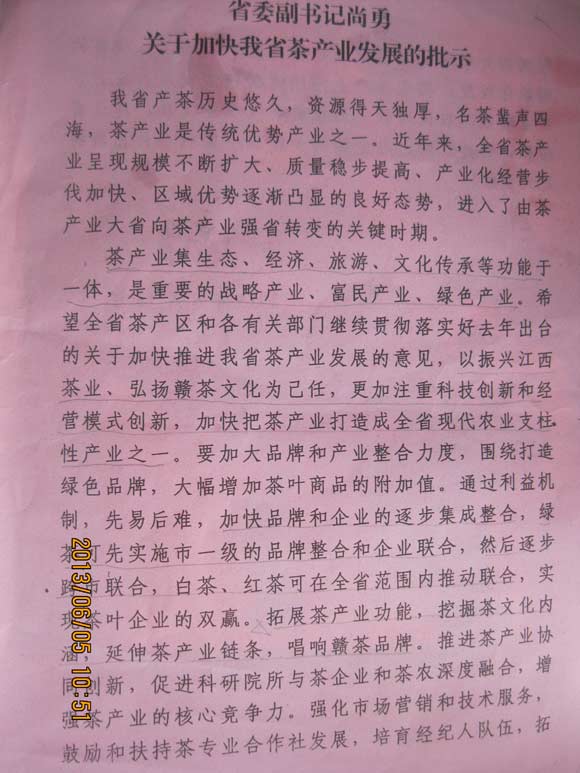 省委副书记尚勇
关于加快我省茶产业发展的批示
我省产茶历史悠久，资源得天独厚，名茶蜚声四
海，茶产业是传统优势产业之一。近年来，全省茶产
业呈现规模不断扩大、质量稳步提高、产业化经营步
伐加快、区域优势逐渐凸显的良好态势，进入了由茶
产业大省向茶产业强省转变的关键时期。
茶产业集生态、经济、旅游、文化传承等功能于
一体，是重要的战略产业、富民产业、绿色产业。希
望全省茶产区和各有关部门继续贯彻落实好去年出台
的关于加快推进我省茶产业发展的意见，以振兴江西
茶业、弘扬赣茶文化为己任，更加注重科技创新和经
营模式创新，加快把茶产业打造成全省现代农业支柱
性产业之一。要加大品牌和产业整合力度，围绕打造
绿色品牌，大幅增加茶叶商品的附加值。通过利益机
制，先易后难，加快品牌和企业的逐步集成整合，绿
茶可先实施市一级的品牌整合和企业联合，然后逐步
跨市联合，白茶、红茶可在全省范围内推动联合，实
现茶叶企业的双赢。拓展茶产业功能，挖掘茶文化内
涵，延伸茶产业链条，唱响赣茶品牌。推进茶产业协
同创新，促进科研院所与茶企业和茶农深度融合，增
强茶产业的核心竞争力。强化市场营销和技术服务，
鼓励和扶持茶专业合作社发展，培育经纪人队伍，拓
2013/06/05 10:51